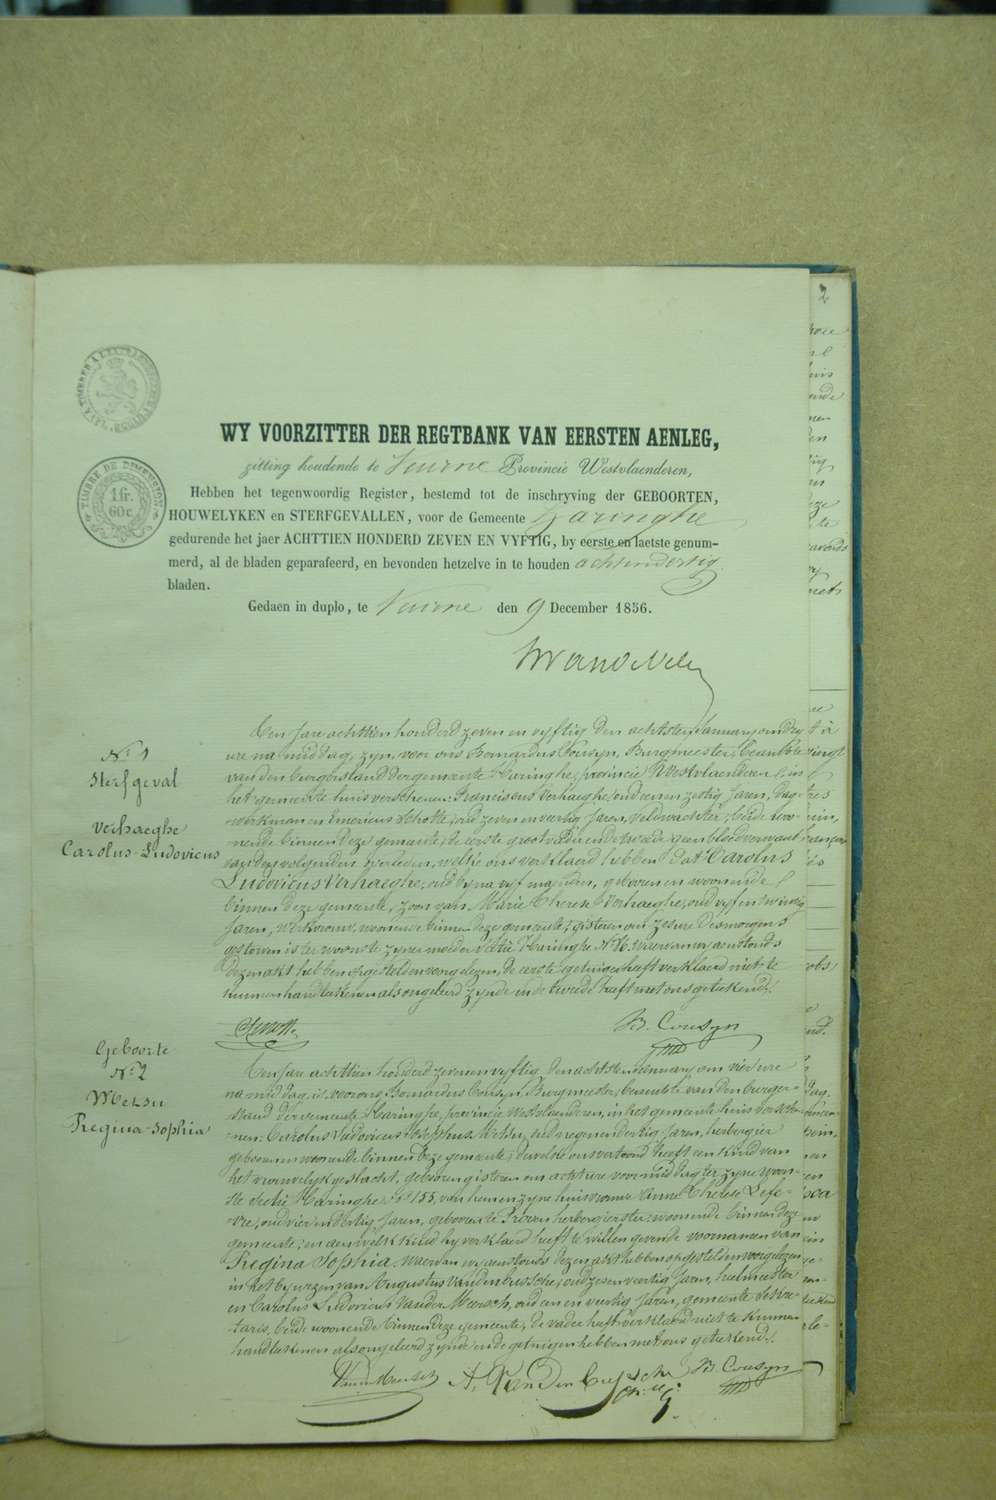 2
WY VOORZITTER DER REGTBANK VAN EERSTEN AENLEG,
zitting houdende te Veurne Provincie Westvlaenderen,
Hebben het tegenwoordig Register, bestemd tot de inschryving der GEBOORTEN,
HOUWELYKEN en STERFGEVALLEN, voor de Gemeente Haringhe
gedurende het jaer ACHTTIEN HONDERD ZEVEN EN VYFTIG, by eerste en laetste genum-
merd, al de bladen geparafeerd, en bevonden hetzelve in te houden achtendertig
bladen.
Gedaen in duplo, te Veurne den 9 December 1856.
TIMBRE DE DIMENSION
1 fr.
60 c.
N.º 1
Sterfgeval
Verhaeghe
Carolus-Ludovicus
Den jare achttien honderd zeven en vyftig den achtsten January om dry
ure na middag, zyn, voor ons Bernardus Cousyn, Burgmeester, beambte
van den burgerstand der gemeente Haringhe, provincie Westvlaenderen, in
het gemeente huis verschenen: Franciscus Verhaeghe, oud een en zestig jaren, dag-
werkman en Emericus Schotte, oud zeven en veertig jaren, veldwachter, beide woo-
nende binnen deze gemeente, de eerste grootvader en de tweede geen bloedverwant
van den volgenden overleden, welke ons verklaerd hebben dat Carolus
Ludovicus Verhaeghe, oud byna vyf maenden, geboren en woonende
binnen deze gemeente, zoon van Marie Therese Verhaeghe, oud vyf en twintig
jaren, werkvrouw, woonende binnen deze gemeente, gisteren om zes ure des morgens
gestorven is ter woonste zyner moeder sectie Haringhe N.º waervan wy aenstonds
dezen akt hebben opgesteld en voorgelezen, de eerste getuige heeft verklaerd niet te
kunnen handteekenen als ongeleerd zynde en de tweede heeft met ons geteekend.
B. Cousyn
Geboorte
N.º 2
Metsu
Regina-Sophia
Den jare achttien honderd zeven en vyftig, den achtsten january, om vier ure
na middag, is, voor ons Bernardus Cousyn, Burgmeester, beambte van den burger-
stand der gemeente Haringhe, provincie Westvlaenderen, in het gemeente huis versche-
nen: Carolus Ludovicus Josephus Metsu, oud negen en dertig jaren, herbergier
geboren en woonende binnen deze gemeente, dewelke ons vertoond heeft een kind van
het vrouwelyk geslacht, geboren gisteren om acht ure voormiddag ter zyne woon-
ste sectie Haringhe N.º 155, van hem en zyne huisvrouwe Anne Therese Lefe-
vre, oud vier en dertig jaren, geboren te Proven herbergierster, woonende binnen deze
gemeente; en aen welk kind hy verklaerd heeft te willen geven de voornamen van
Regina Sophia. Waervan wy aenstonds dezen akt hebben opgesteld en voorgelezen
in het bywezen van Augustus Vandenbussche, oud zes en veertig jaren, hulmeester
en Carolus Ludovicus Vander Meersch, oud een en veertig jaren, gemeente secre-
taris, beide woonende binnen deze gemeente, de vader heeft verklaerd niet te kunnen
handteekenen als ongeleerd zynde en de getuigen hebben met ons geteekend.
A. Vanden Bussche
B. Cousyn